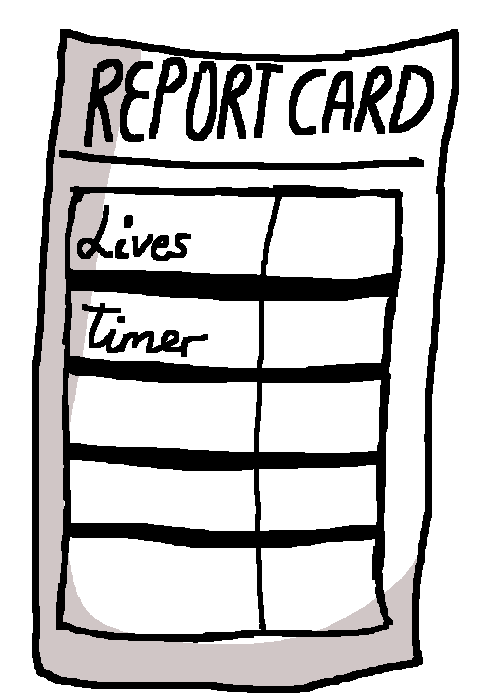 REPORT CARD
Lives
Timer